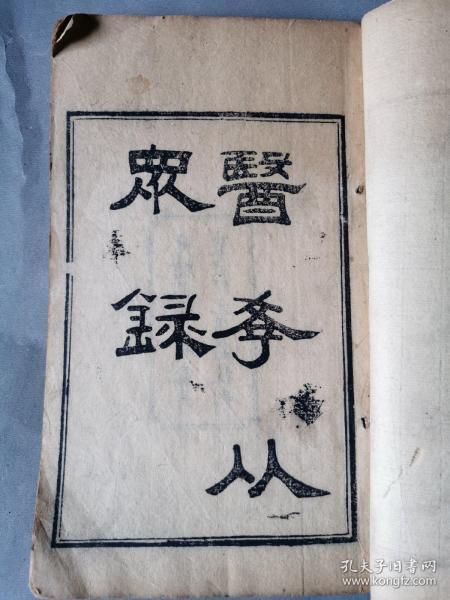 醫斈从
眾録
孔夫子旧书网
www.kongfz.com